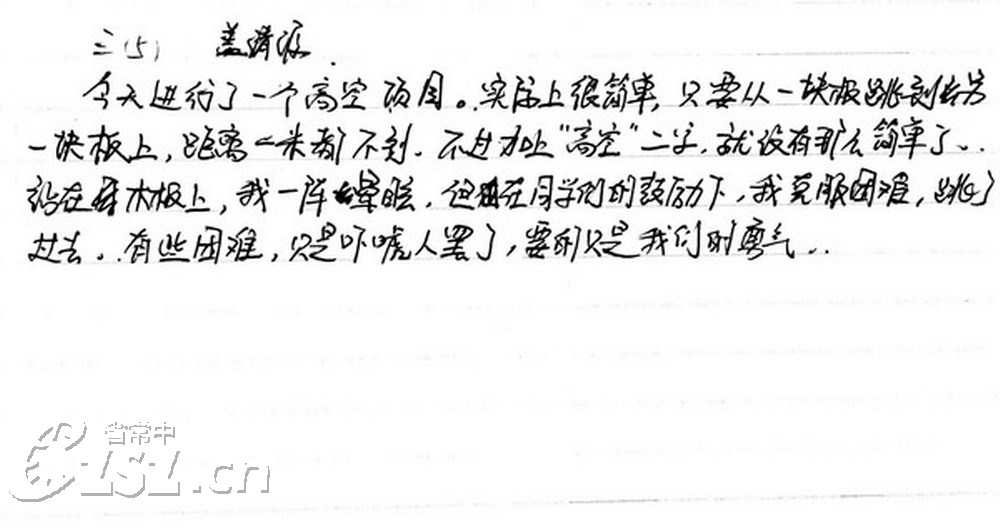 三(5)
今天进行了一个高空项目。实际上很简单,只要从一块板跳到另
一块板上,距离一米都不到.不过加上"高空"二字,就没有那么简单了..
站在木板上,我一阵晕眩,但在同学们的鼓励下,我克服困难,跳了
过去。有些困难,只是吓唬人罢了,要的只是我们的勇气..
省常中
CZSZ.cn